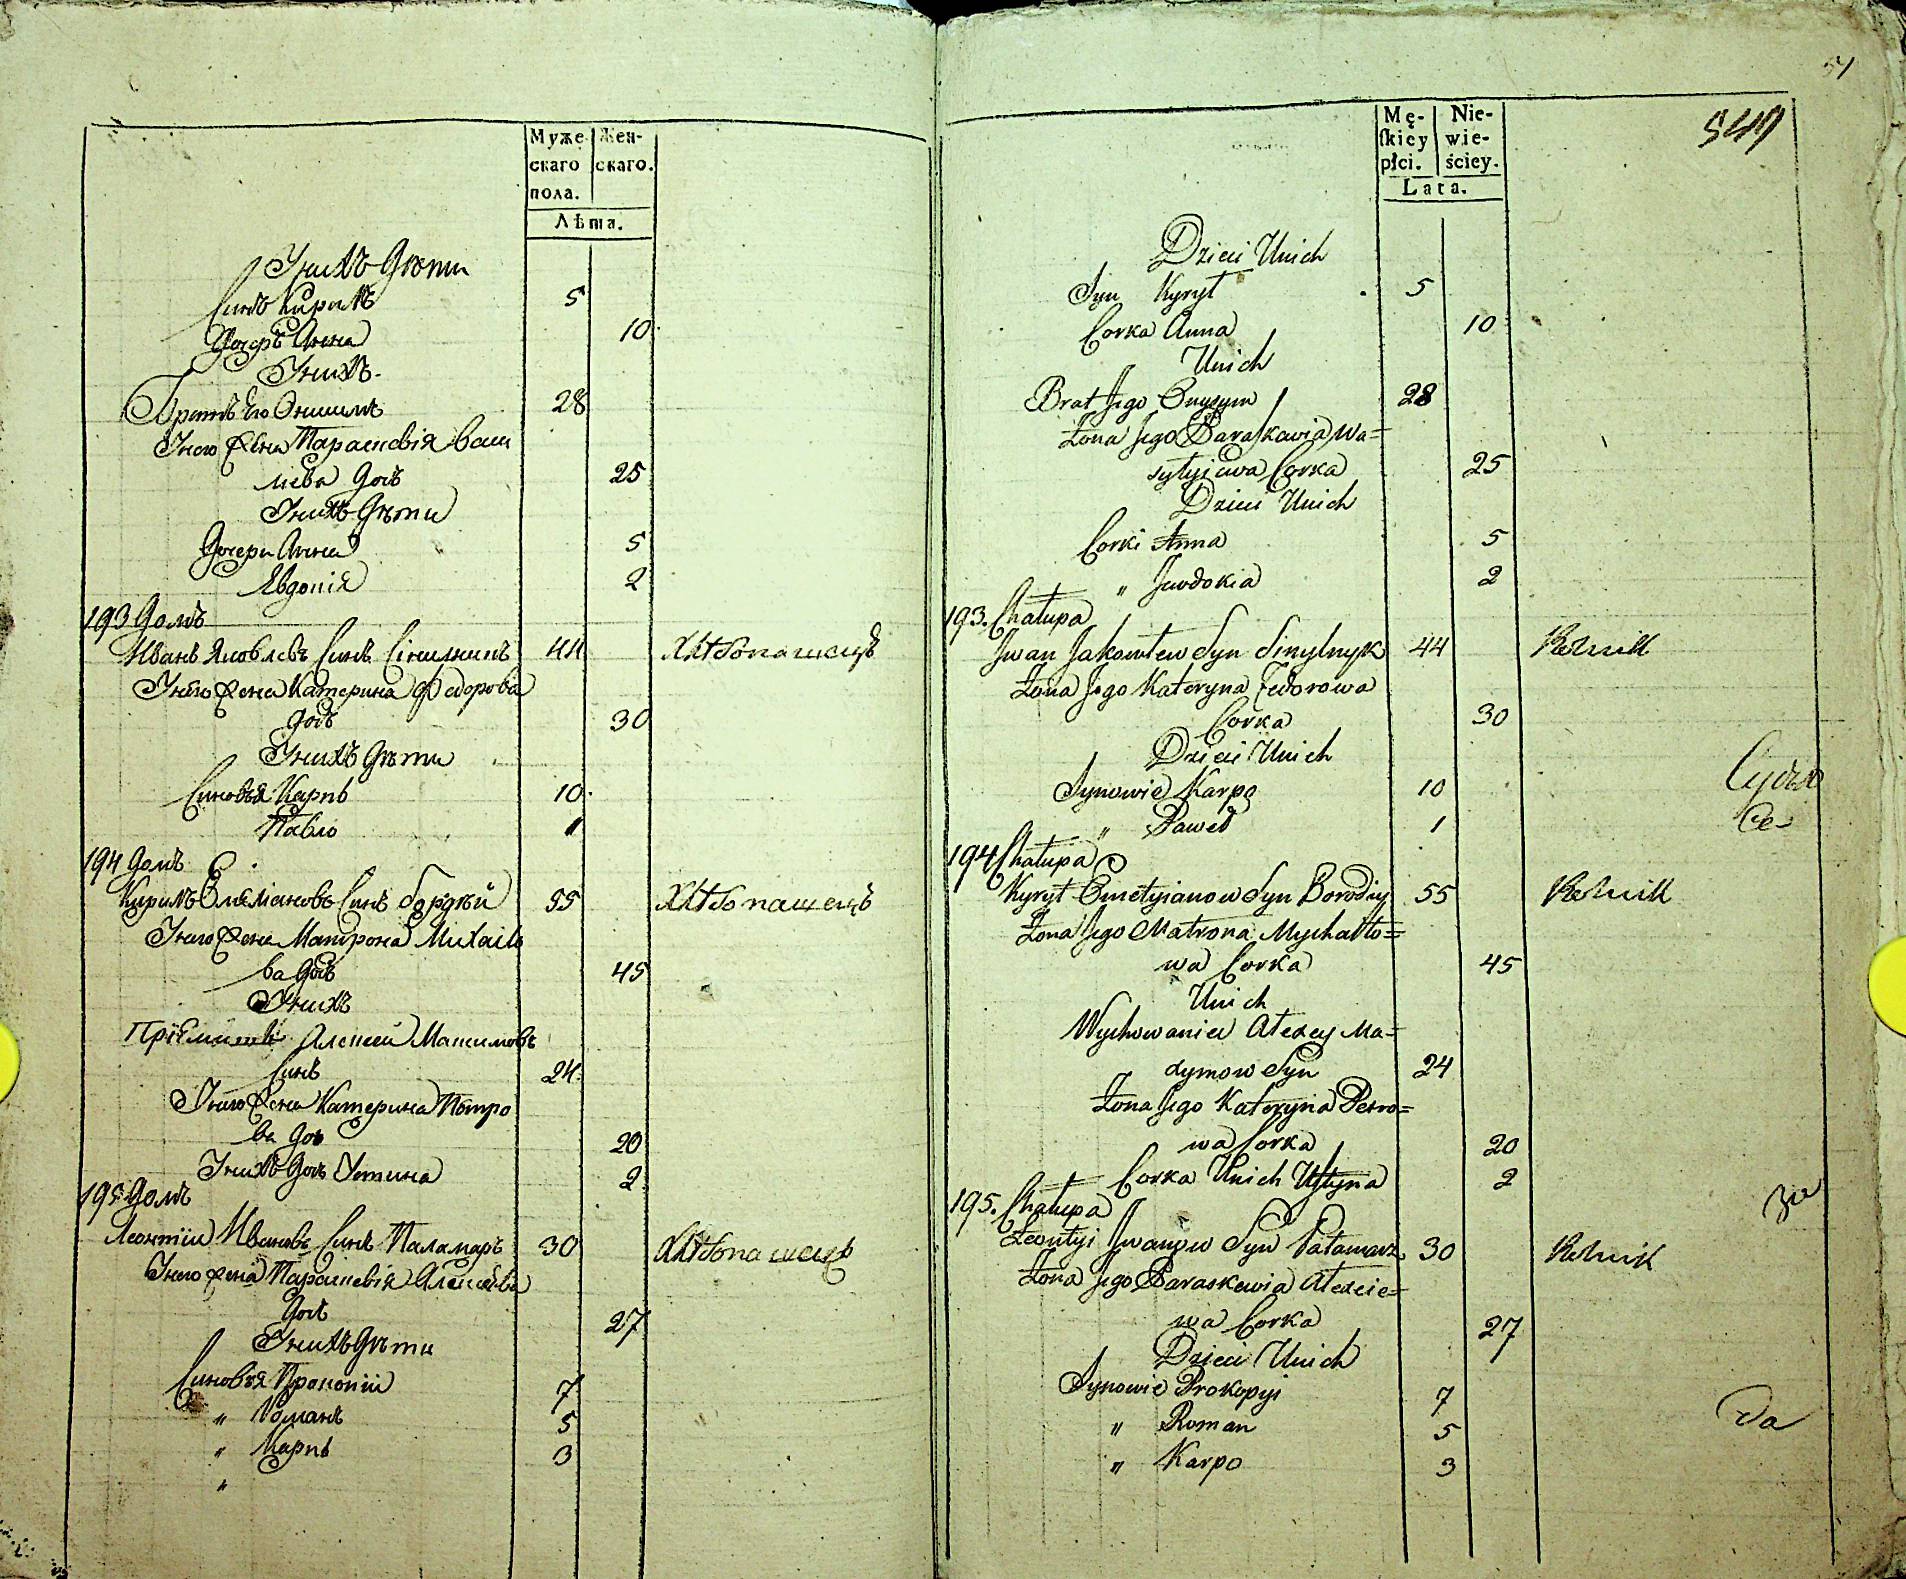 Муже-
скаго
пола.
Жен-
скаго.
Лѣта.
У нихъ Дѣти
Синъ Кирилъ 5
Дочеръ Анна 10
У нихъ
Братъ Его Онисимъ 28
У него Жена Параскевія Васи
лиева Доч 25
У нихъ Дѣти
Дочери Анна 5
Явдокія 2
193 Домъ
Иванъ Яковлевъ Синъ 44 Хлѣбопашецъ
У него Жена Катерина Федорова
Доч 30
У нихъ Дѣти
Синовья Карпъ 10
Павло 1
194 Домъ
Кирилъ Омеляновъ Синъ Бородѣй 55 Хлѣбопашецъ
У него Жена Матрона Михайло
ва Доч 45
У нихъ
Пріемишъ Алексей Максимовъ
Синъ 24
У него Жена Катерина Петро
ва Доч 20
У нихъ Доч Устина 2
195 Домъ
Леонтіи Ивановъ Синъ Паламаръ 30 Хлѣбопашецъ
У него Жена Параскевія Алексѣева
Доч 27
У нихъ Дѣти
Синовья Прокопіи 7
" Романъ 5
" Карпъ 3
"
51
549
Mę-
skiey
płci.
Nie-
wie-
ściey.
Lata.
Dzieci Unich
Syn Kyrył 5
Corka Anna 10
Unich
Brat Jego Onyzym 28
Żona Jego Paraskawia Wa=
syłyjewa Corka 25
Dzieci Unich
Corki Anna 5
" Jewdokia 2
193. Chałupa
Jwan Jakowlew Syn Sinylnyk 44 Rolnik
Żona Jego Kateryna Fedorowa
Corka 30
Dzieci Unich
Synowie Karpo 10
" Paweł 1
Се-
194 Chałupa
Kyrył Omełyianow Syn Borodiy 55 Rolnik
Żona Jego Matrona Mychałło=
wa Corka 45
Unich
Wychowaniec Alexey Ma=
xymow Syn 24
Żona Jego Kateryna Petro=
wa Corka 20
Corka Unich Ustyna 2
195. Chałupa
Leontyi Jwanow Syn Pałamarz 30 Rolnik
Żona Jego Paraskewia Alexie=
wa Corka 27
Dzieci Unich
Synowie Prokopyi 7
" Roman 5
да
" Karpo 3